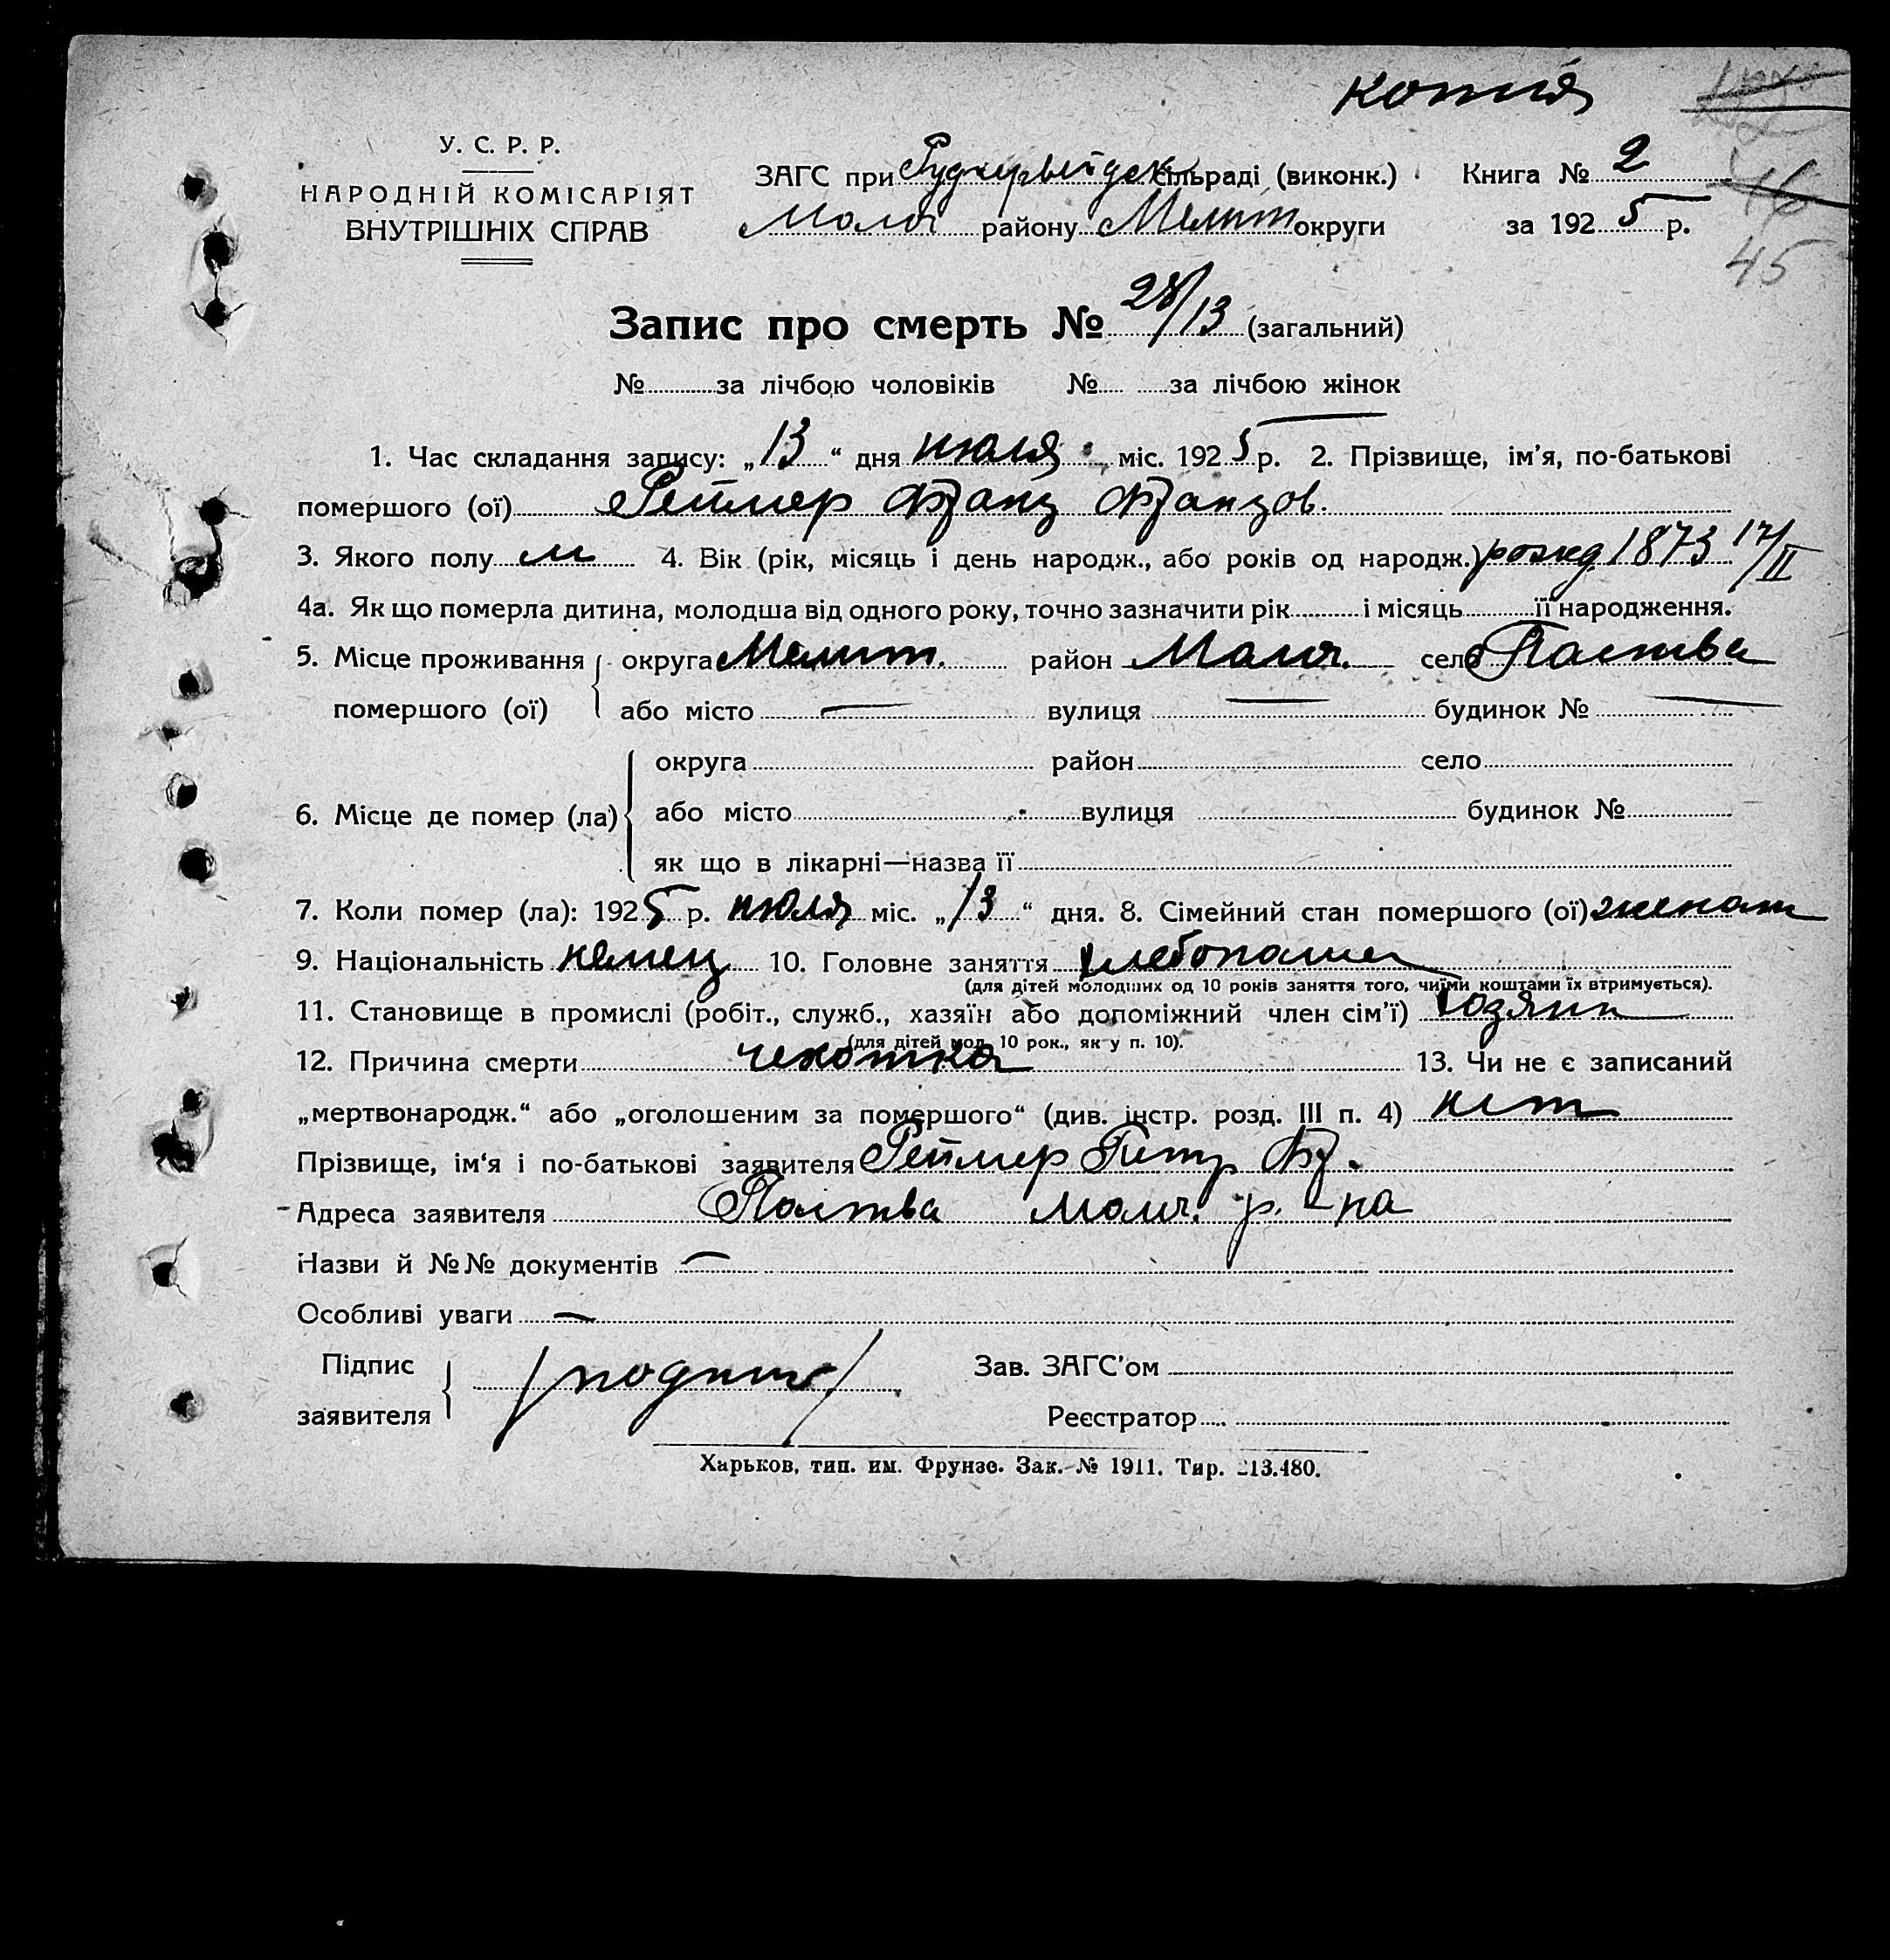 копия
У. С. Р. Р.
НАРОДНІЙ КОМІСАРІЯТ
ВНУТРІШНІХ СПРАВ
ЗАГС при Рудервейдск сільраді (виконк.) Книга № 2
Молоч району Мелит округи за 1925 р.
45
Запис про смерть № 28/13 (загальний)
№ за лічбою чоловіків № за лічбою жінок
1. Час складання запису: „13“ дня июля міс. 1925 р. 2. Прізвище, ім'я, по-батькові
помершого (ої) Реймер Франц Францов.
3. Якого полу м 4. Вік (рік, місяць і день народж., або років од народж.) рожд. 1873 17/II
4а. Як що померла дитина, молодша від одного року, точно зазначити рік і місяць її народження.
5. Місце проживання округа Мелит. район Молоч. село Паства
помершого (ої) або місто — вулиця — будинок № —
округа район село
6. Місце де помер (ла) або місто вулиця будинок №
як що в лікарні—назва її
7. Коли помер (ла): 1925 р. июля міс. „13“ дня. 8. Сімейний стан помершого (ої) женат
9. Національність немец 10. Головне заняття хлебопашец
(для дітей молодших од 10 років заняття того, чиїми коштами їх втримується).
11. Становище в промислі (робіт., служб., хазяїн або допоміжний член сім'ї) хозяин
(для дітей мол. 10 рок., як у п. 10).
12. Причина смерти чехотка 13. Чи не є записаний
„мертвонародж.“ або „оголошеним за помершого“ (див. інстр. розд. III п. 4) нет
Прізвище, ім'я і по-батькові заявителя Реймер Петр Фр.
Адреса заявителя Паства Молоч. р-на
Назви й №№ документів —
Особливі уваги —
Підпис /подпись/ Зав. ЗАГС'ом
заявителя Реєстратор
Харьков, тип. им. Фрунзе. Зак. № 1911. Тир. 213.480.